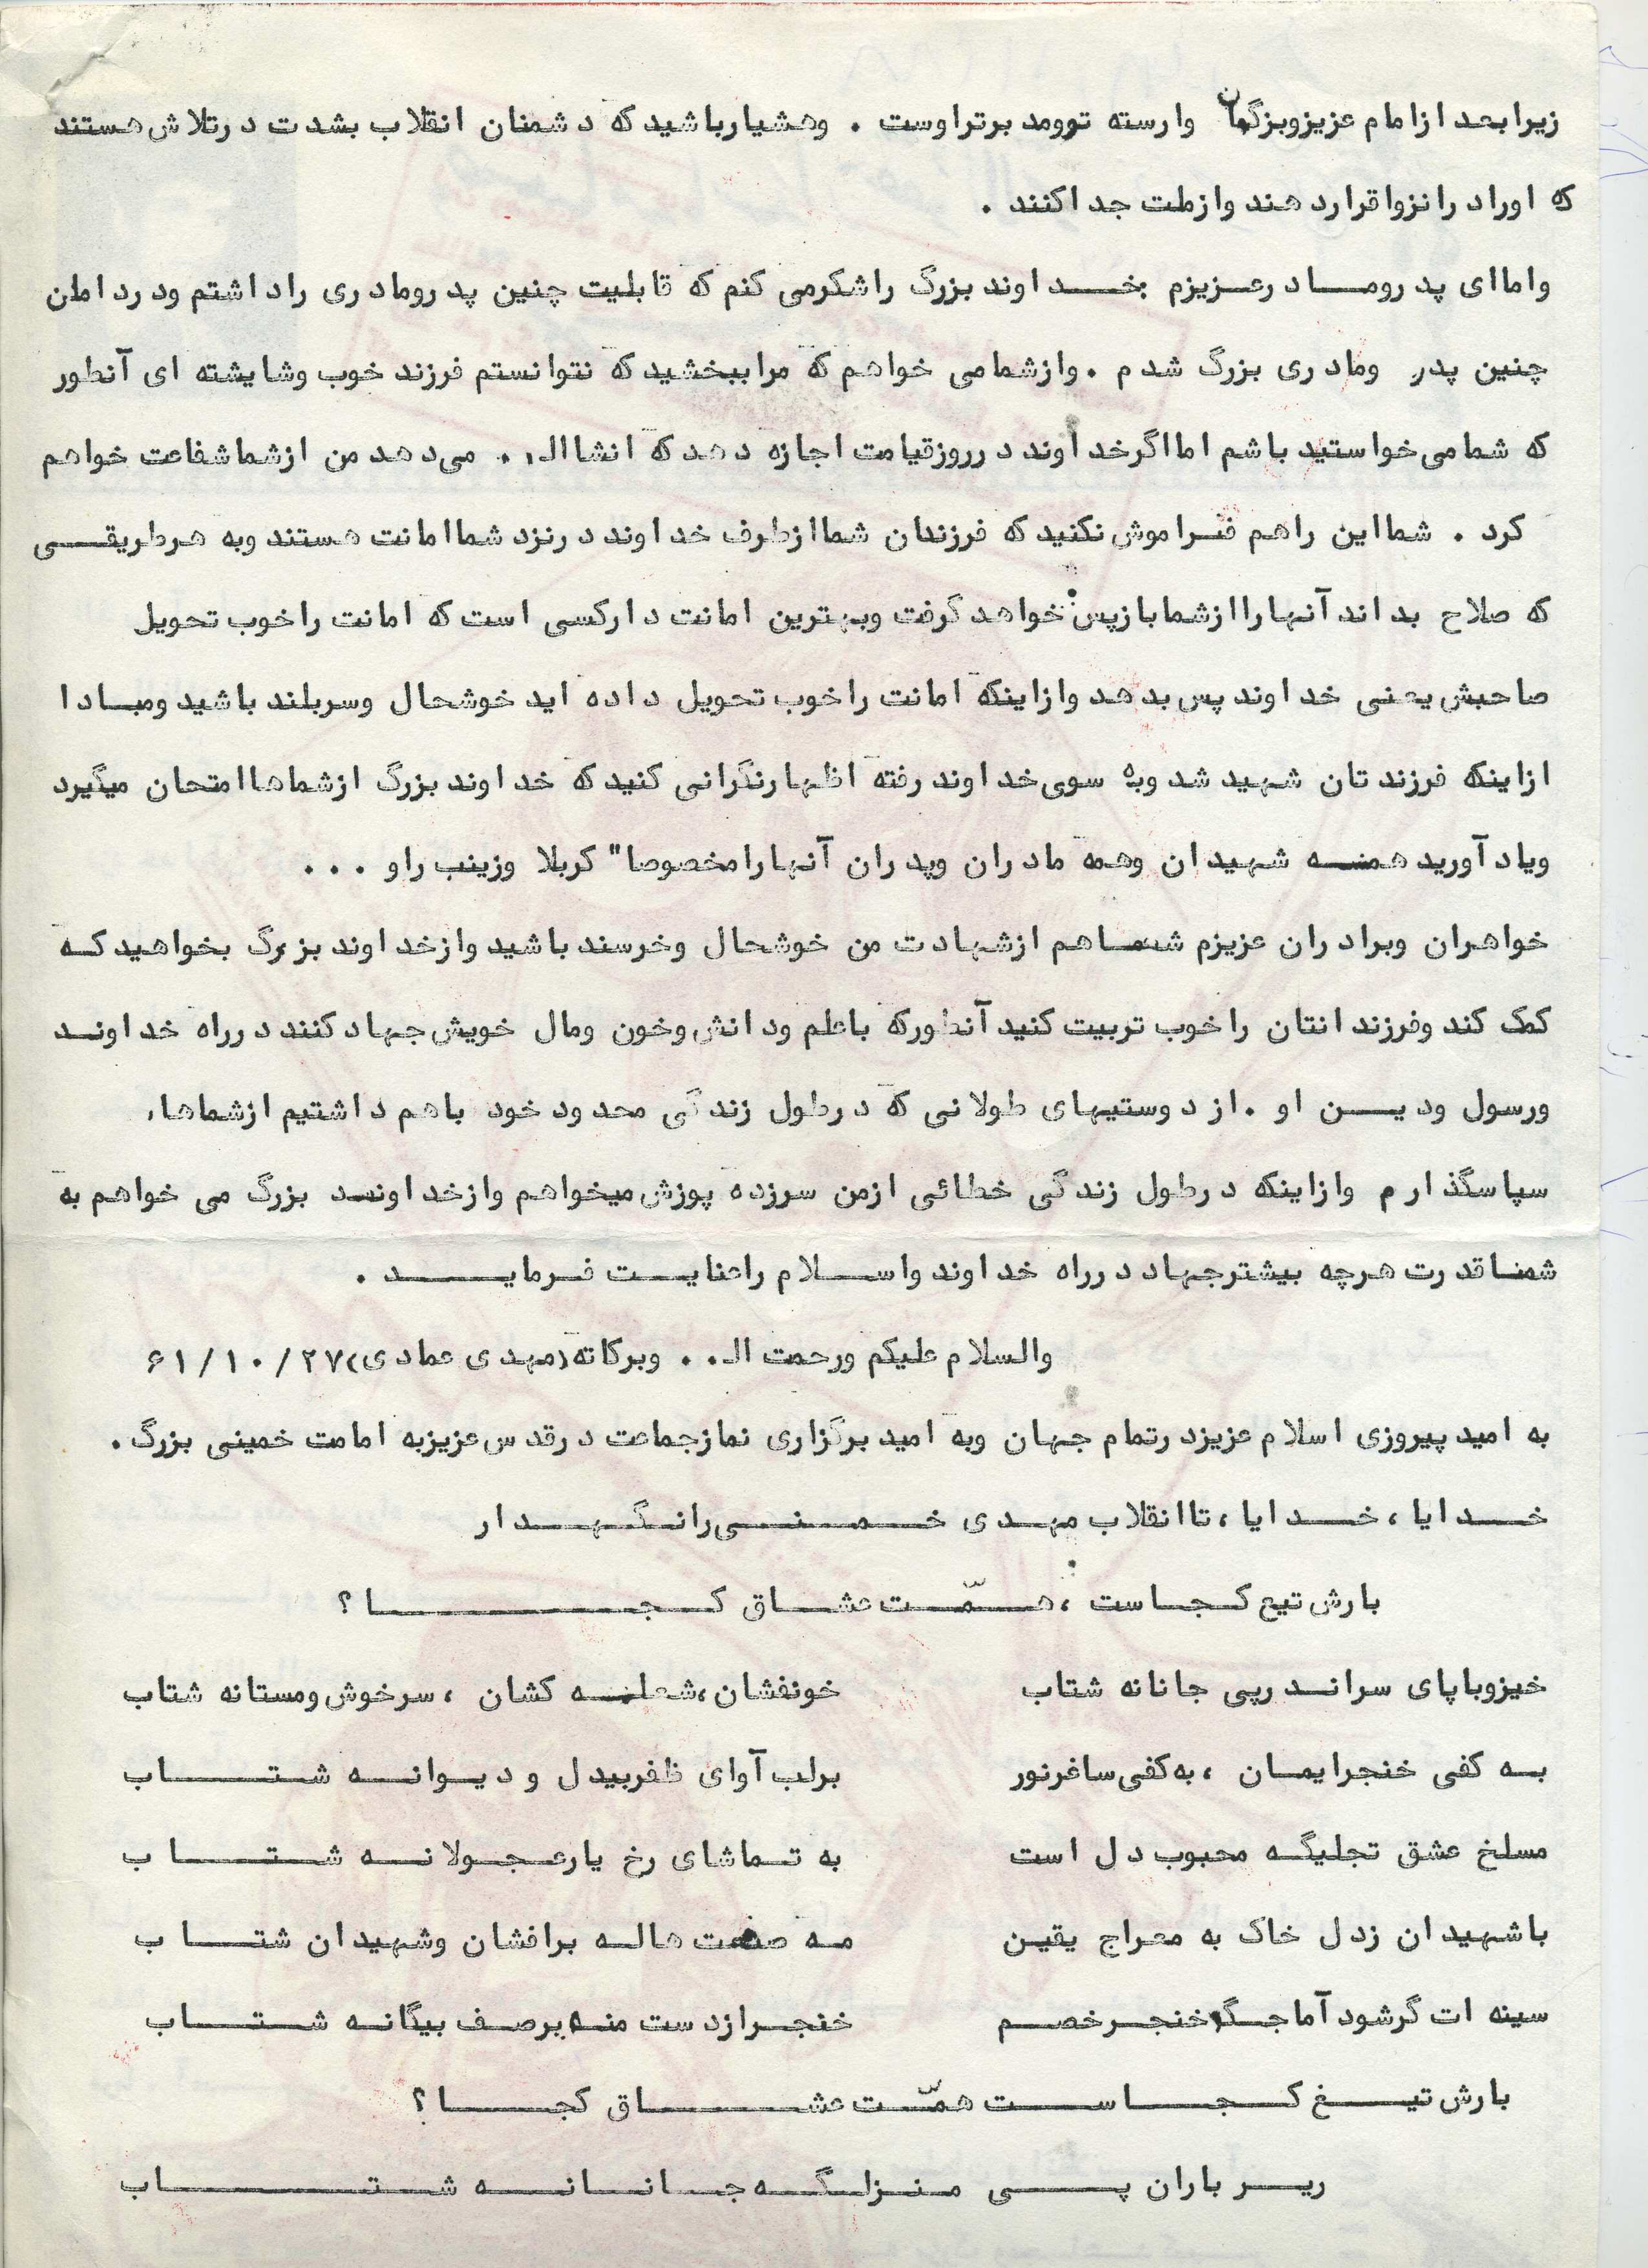 زیرا بعد از امام عزیز و بزرگمان وارسته تر ومد برتر اوست . وهشیار باشید که دشمنان انقلاب بشدت در تلاش هستند
که او را در انزوا قرار دهند و از ملت جدا کنند .
واما ای پدر ومـادر عـزیزم بخـداوند بزرگ را شکر می کنم که قابلیت چنین پدر ومادری را داشتم ودر دامان
چنین پدر ومادری بزرگ شدم . واز شما می خواهم که مرا ببخشید که نتوانستم فرزند خوب وشایشته ای آنطور
که شما می خواستید باشم اما اگر خداوند در روز قیامت اجازه دهد که انشاالـ.. می دهد من از شما شفاعت خواهم
کرد . شما این را هم فـراموش نکنید که فرزندان شما از طرف خداوند در نزد شما امانت هستند وبه هر طریقـی
که صلاح بداند آنها را از شما باز پس خواهد گرفت وبهترین امانت دار کسی است که امانت را خوب تحویل
صاحبش یعنی خداوند پس بدهد و از اینکه امانت را خوب تحویل داده اید خوشحال وسربلند باشید ومبـادا
از اینکه فرزندتان شهید شد وبه سوی خداوند رفته اظهار نگرانی کنید که خداوند بزرگ از شماها امتحان میگیرد
ویاد آورید همـه شهیدان وهمه مادران وپدران آنها را مخصوصا" کربلا وزینب را و ...
خواهران وبرادران عزیزم شمـا هم از شهادت من خوشحال وخرسند باشید واز خداوند بزرگ بخواهید کـه
کمک کند وفرزندانتان را خوب تربیت کنید آنطور که با علم ودانش وخون ومال خویش جهاد کنند در راه خداونـد
ورسول ودیـن او . از دوستیهای طولانی که در طول زندگی محدود خود با هم داشتیم از شماها،
سپاسگذارم واز اینکه در طول زندگی خطائی از من سرزده پوزش میخواهم واز خداونـد بزرگ می خواهم به
شمـا قدرت هرچه بیشتر جهاد در راه خداوند واسـلام را عنایـت فـرمایـد .
والسلام علیکم ورحمت الـ.. وبرکاته (مهدی عمادی) ۶۱/۱۰/۲۷
به امید پیروزی اسلام عزیز در تمام جهان وبه امید برگزاری نماز جماعت در قدس عزیز به امامت خمینی بزرگ .
خـدایا ، خـدایا ، تا انقلاب مهـدی خـمـنـی را نـگـهـدار
بارش تیع کـجـاست ، هـمّـت عشـاق کـجـا ؟
خیز وبا پای سر انـدر پی جانانه شتاب
خونفشان ، شعلـه کشان ، سرخوش ومستانه شتاب
بـه کفی خنجر ایمـان ، به کفی سافر نور
بر لب آوای ظفر بیدل و دیـوانـه شـتـاب
مسلخ عشق تجلیگـه محبوب دل است
به تـماشای رخ یار عـجـولانـه شـتـاب
با شهیدان زدل خاک به معراج یقیـن
مـه صفت هالـه بر افشان وشهیدان شتـاب
سینه ات گر شود آماجـگـه خنجـر خصـم
خنجـر از دست منـه بر صـف بیگانـه شـتـاب
بارش تیـغ کـجـاسـت همّـت عشـاق کجـا ؟
ریـر باران پـی مـنـزلـگـه جـانـانـه شـتـاب